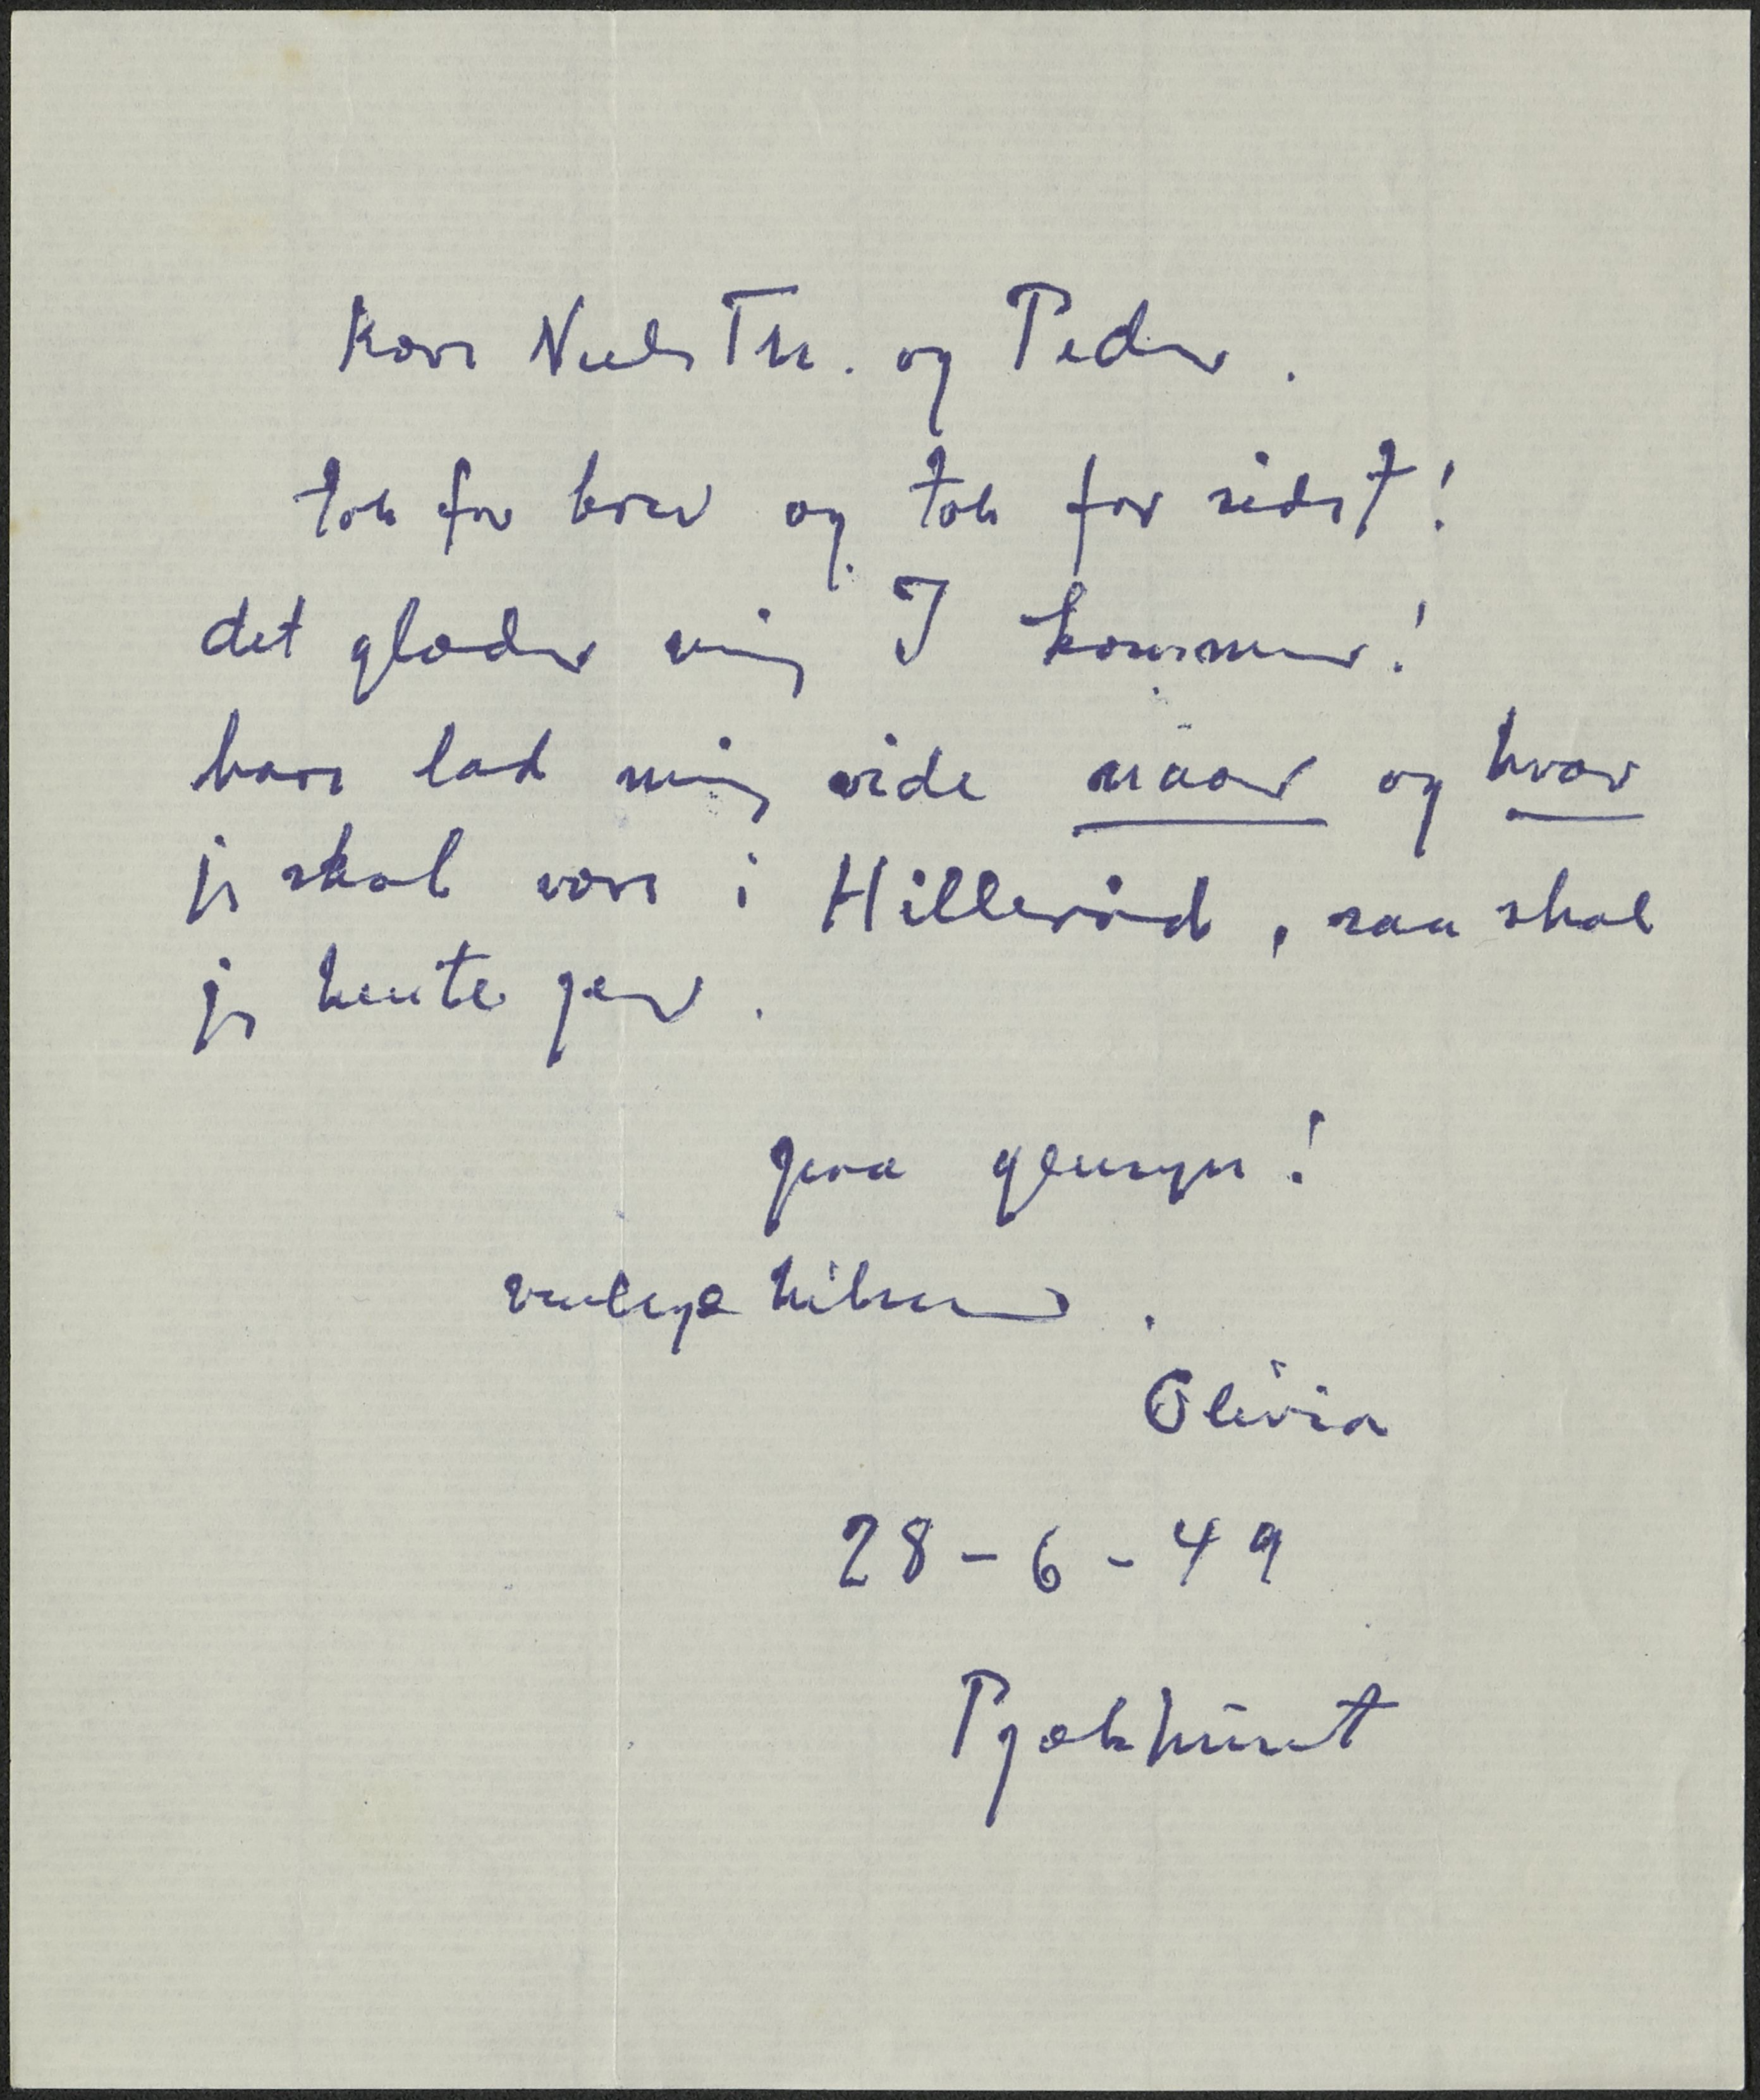 Kære Niels Th. og Peder.
tak for brev og tak for sidst!
det glæder mig I kommer!
bare lad mig vide naar og hvor
jeg skal være i Hillerød, saa skal
jeg hente jer.
paa gensyn!
venlige hilsener.
Olivia
28-6-49